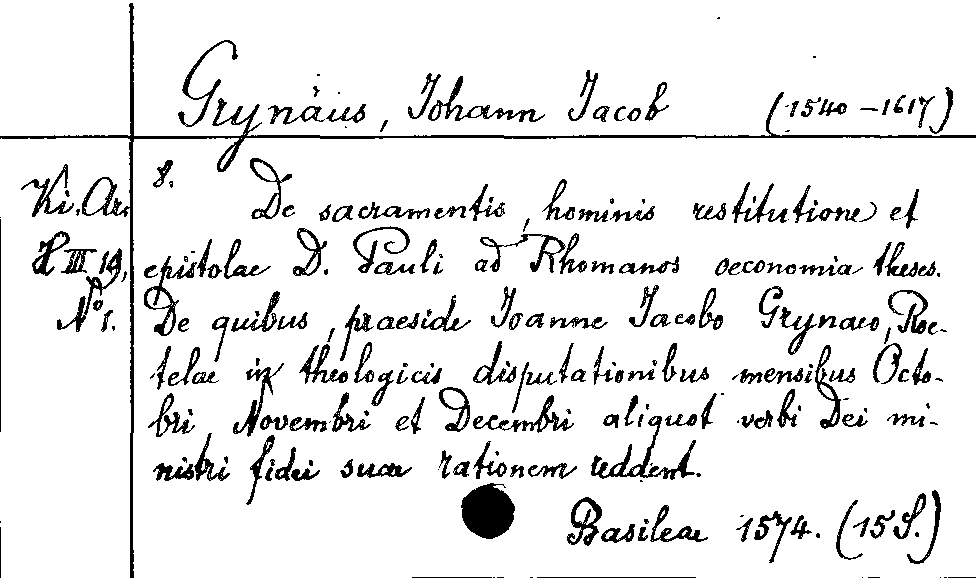 Grynäus, Johann Jacob (1540–1617)
Ki. Ar. 8.
H III 19, N° 1.
De sacramentis, hominis restitutione et
epistolae D. Pauli ad Rhomanos oeconomia theses.
De quibus, praeside Joanne Jacobo Grynaeo, Roe-
telae in theologicis disputationibus mensibus Octo-
bri Novembri et Decembri aliquot verbi Dei mi-
nistri fidei suae rationem reddent.
Basileae 1574. (15 S.)